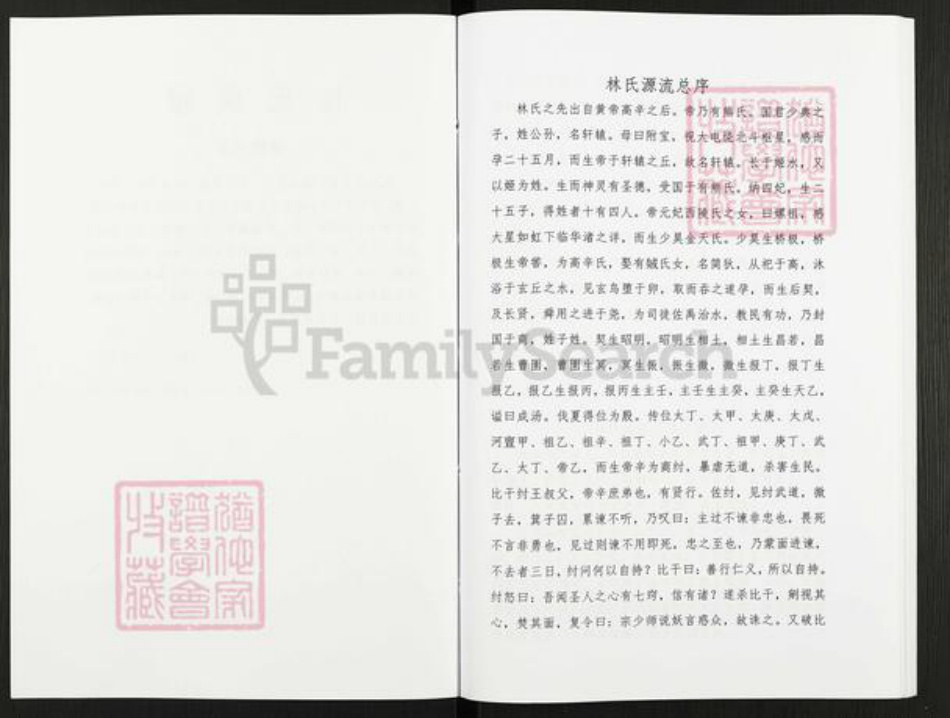 林氏源流总序
林氏之先出自黄帝高辛之后。帝乃有熊氏。国君少典之
子，姓公孙，名轩辕。母曰附宝，视大电绕北斗枢星，感而
孕二十五月，而生帝于轩辕之丘，故名轩辕。长于姬水，又
以姬为姓。生而神灵有圣德，受国于有熊氏。纳四妃，生二
十五子，得姓者十有四人。帝元妃西陵氏之女，曰嫘祖，感
大星如虹下临华渚之详，而生少昊金天氏。少昊生桥极，桥
极生帝喾，为高辛氏，娶有娀氏女，名简狄，从祀于高，沐
浴于玄丘之水，见玄鸟堕于卵，取而吞之遂孕，而生后契，
及长贤，舜用之进于尧，为司徒佐禹治水，教民有功，乃封
国于商，姓子姓。契生昭明，昭明生相土，相土生昌若，昌
若生曹圉，曹圉生冥，冥生振，振生微，微生报丁，报丁生
报乙，报乙生报丙，报丙生主壬，主壬生主癸，主癸生天乙，
谥曰成汤。伐夏得位为殷。传位太丁、太甲、太庚、太戊、
河亶甲、祖乙、祖辛、祖丁、小乙、武丁、祖甲、庚丁、武
乙、太丁、帝乙，而生帝辛为商纣，暴虐无道，杀害生民。
比干纣王叔父，帝辛庶弟也，有贤行。佐纣，见纣武道，微
子去，箕子囚，累谏不听，乃叹曰：主过不谏非忠也，畏死
不言非勇也，见过则谏不用即死，忠之至也，乃蒙面进谏，
不去者三日，纣问何以自持？比干曰：善行仁义，所以自持。
纣怒曰：吾闻圣人之心有七窍，信有诸？遂杀比干，剜视其
心，焚其面，复令曰：宗少师说妖言惑众，故诛之。又破比
猶他家
譜學會
收藏
猶他家
譜學會
收藏
FamilySearch